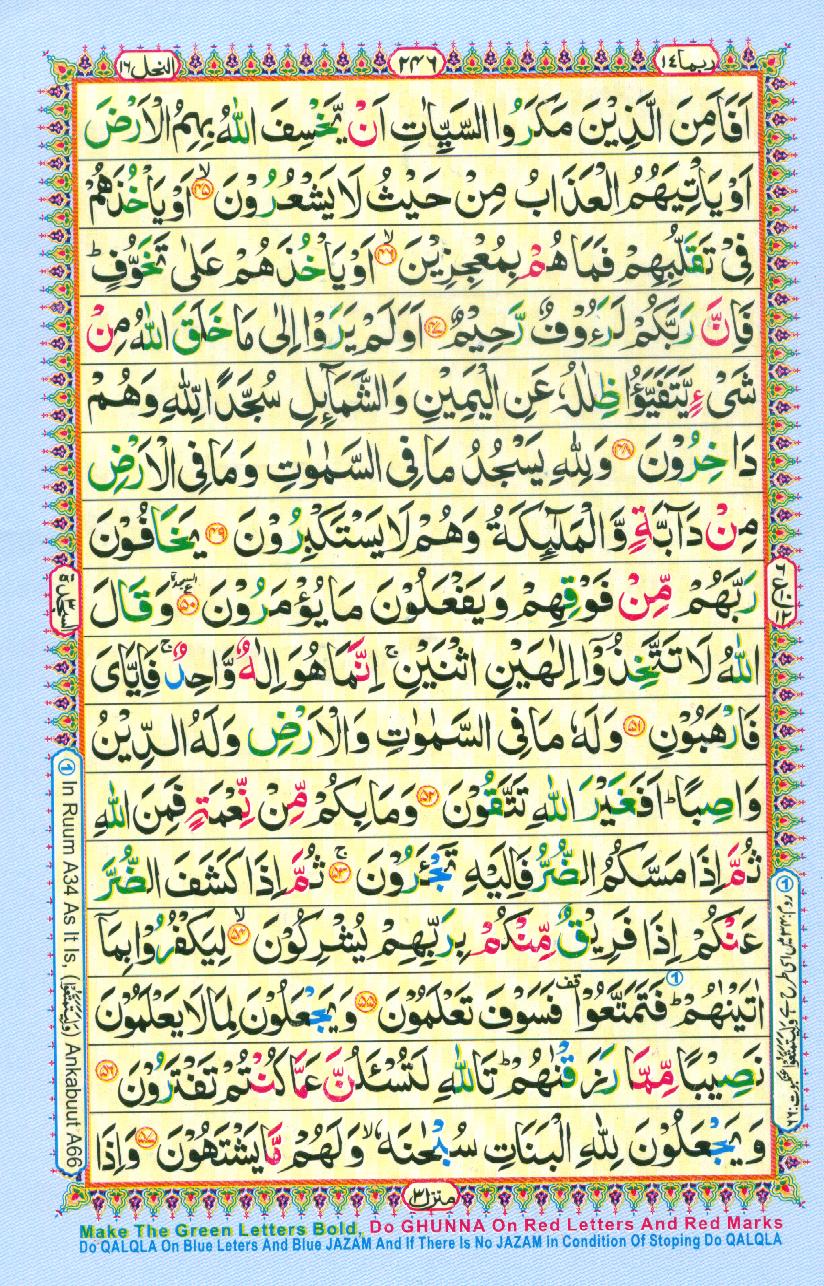 ربما ١٤
٢٤٦
النحل ١٦
اَفَاَمِنَ الَّذِيْنَ مَكَرُوا السَّيِّاٰتِ اَنْ يَّخْسِفَ اللّٰهُ بِهِمُ الْاَرْضَ
اَوْ يَاْتِيَهُمُ الْعَذَابُ مِنْ حَيْثُ لَا يَشْعُرُوْنَ ۙ‏﴿۴۵﴾ اَوْ يَاْخُذَهُمْ
فِىْ تَقَلُّبِهِمْ فَمَا هُمْ بِمُعْجِزِيْنَ ۙ‏﴿۴۶﴾ اَوْ يَاْخُذَهُمْ عَلٰى تَخَوُّفٍ ؕ
فَاِنَّ رَبَّكُمْ لَرَءُوْفٌ رَّحِيْمٌ ‏﴿۴۷﴾ اَوَلَمْ يَرَوْا اِلٰى مَا خَلَقَ اللّٰهُ مِنْ
شَىْءٍ يَّتَفَيَّؤُا ظِلٰلُهٗ عَنِ الْيَمِيْنِ وَالشَّمَآئِلِ سُجَّدًا لِّلّٰهِ وَهُمْ
دَاخِرُوْنَ ‏﴿۴۸﴾ وَلِلّٰهِ يَسْجُدُ مَا فِى السَّمٰوٰتِ وَمَا فِى الْاَرْضِ
مِنْ دَآبَّةٍ وَّالْمَلٰٓئِكَةُ وَهُمْ لَا يَسْتَكْبِرُوْنَ ‏﴿۴۹﴾ يَخَافُوْنَ
رَبَّهُمْ مِّنْ فَوْقِهِمْ وَيَفْعَلُوْنَ مَا يُؤْمَرُوْنَ ‏﴿۵۰﴾ وَقَالَ
اللّٰهُ لَا تَتَّخِذُوْۤا اِلٰهَيْنِ اثْنَيْنِ ۚ اِنَّمَا هُوَ اِلٰهٌ وَّاحِدٌ ۚ فَاِيَّاىَ
فَارْهَبُوْنِ ‏﴿۵۱﴾ وَلَهٗ مَا فِى السَّمٰوٰتِ وَالْاَرْضِ وَلَهُ الدِّيْنُ
وَاصِبًا ؕ اَفَغَيْرَ اللّٰهِ تَتَّقُوْنَ ‏﴿۵۲﴾ وَمَا بِكُمْ مِّنْ نِّعْمَةٍ فَمِنَ اللّٰهِ
ثُمَّ اِذَا مَسَّكُمُ الضُّرُّ فَاِلَيْهِ تَجْئَرُوْنَ ۚ‏﴿۵۳﴾ ثُمَّ اِذَا كَشَفَ الضُّرَّ
عَنْكُمْ اِذَا فَرِيْقٌ مِّنْكُمْ بِرَبِّهِمْ يُشْرِكُوْنَ ۙ‏﴿۵۴﴾ لِيَكْفُرُوْا بِمَاۤ
اٰتَيْنٰهُمْ ؕ فَتَمَتَّعُوْا ① قف فَسَوْفَ تَعْلَمُوْنَ ‏﴿۵۵﴾ وَيَجْعَلُوْنَ لِمَا لَا يَعْلَمُوْنَ
نَصِيْبًا مِّمَّا رَزَقْنٰهُمْ ؕ تَاللّٰهِ لَتُسْئَلُنَّ عَمَّا كُنْتُمْ تَفْتَرُوْنَ ‏﴿۵۶﴾
وَيَجْعَلُوْنَ لِلّٰهِ الْبَنٰتِ سُبْحٰنَهٗ ۙ وَلَهُمْ مَّا يَشْتَهُوْنَ ‏﴿۵۷﴾ وَاِذَا
السجدة ٣
① In Ruum A34 As It Is, (وَلِيَتَمَتَّعُوْا) Ankabuut A66
منزل ٣
Make The Green Letters Bold, Do GHUNNA On Red Letters And Red Marks
Do QALQLA On Blue Leters And Blue JAZAM And If There Is No JAZAM In Condition Of Stoping Do QALQLA